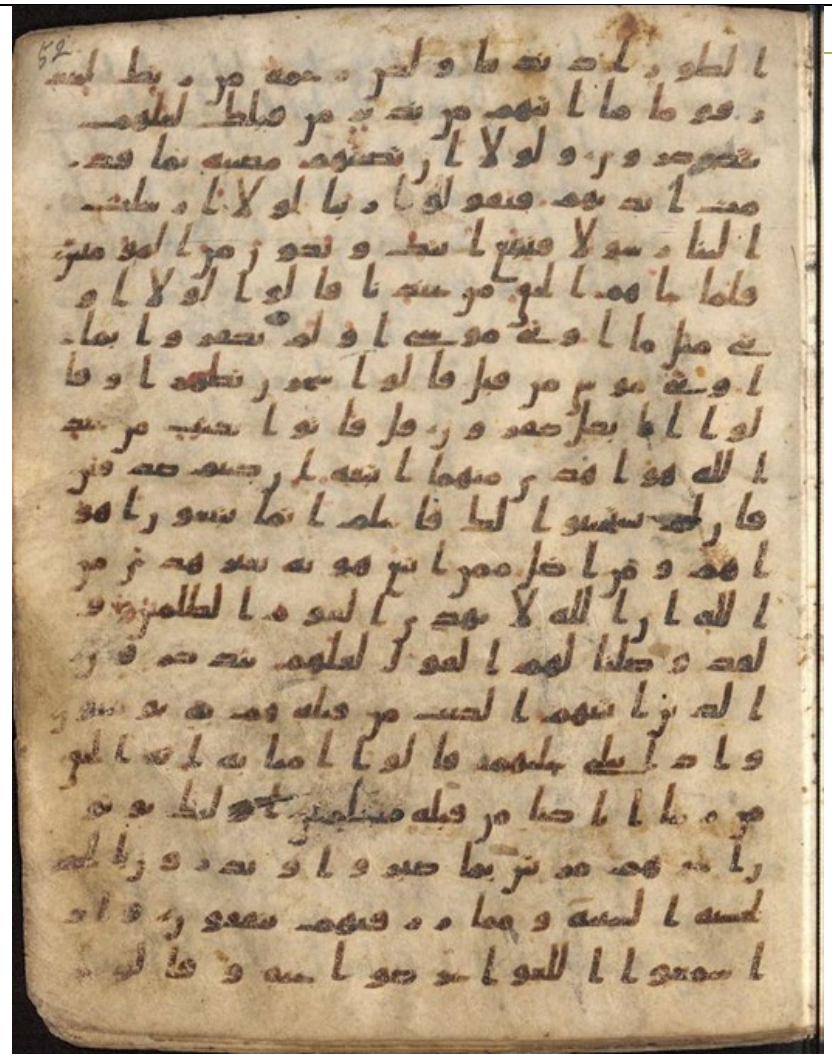 52
الطور اذ ندينا ولكن رحمه من ربك لتنذ
ر قوما ما اتيهم من نذير من قبلك لعلهم
يتذكرون ولولا ان تصيبهم مصيبه بما قد
مت ايديهم فيقولوا ربنا لولا ارسلت
الينا رسولا فنتبع ايتك ونكون من المومنين
فلما جاهم الحق من عندنا قالوا لولا ا و
تي مثل ما اوتي موسى اولم يكفروا بما
اوتي موسى من قبل قالوا سحرن تظهرا وقا
لوا انا بكل كفرون قل فاتوا بكتب من عند
الله هو اهدى منهما اتبعه ان كنتم صدقين
فان لم يستجيبوا لك فاعلم انما يتبعون اهو
اهم ومن اضل ممن اتبع هويه بغير هدى من
الله ان الله لا يهدي القوم الظلمين و
لقد وصلنا لهم القول لعلهم يتذكرون
الذين اتينهم الكتب من قبله هم به يومنون
واذا يتلى عليهم قالوا امنا به انه الحق
من ربنا انا كنا من قبله مسلمين اولئك يوتو
ن اجرهم مرتين بما صبروا ويدرون
لحسنه السيئه ومما رزقنهم ينفقون واذ
ا سمعوا اللغو اعرضوا عنه وقالوا